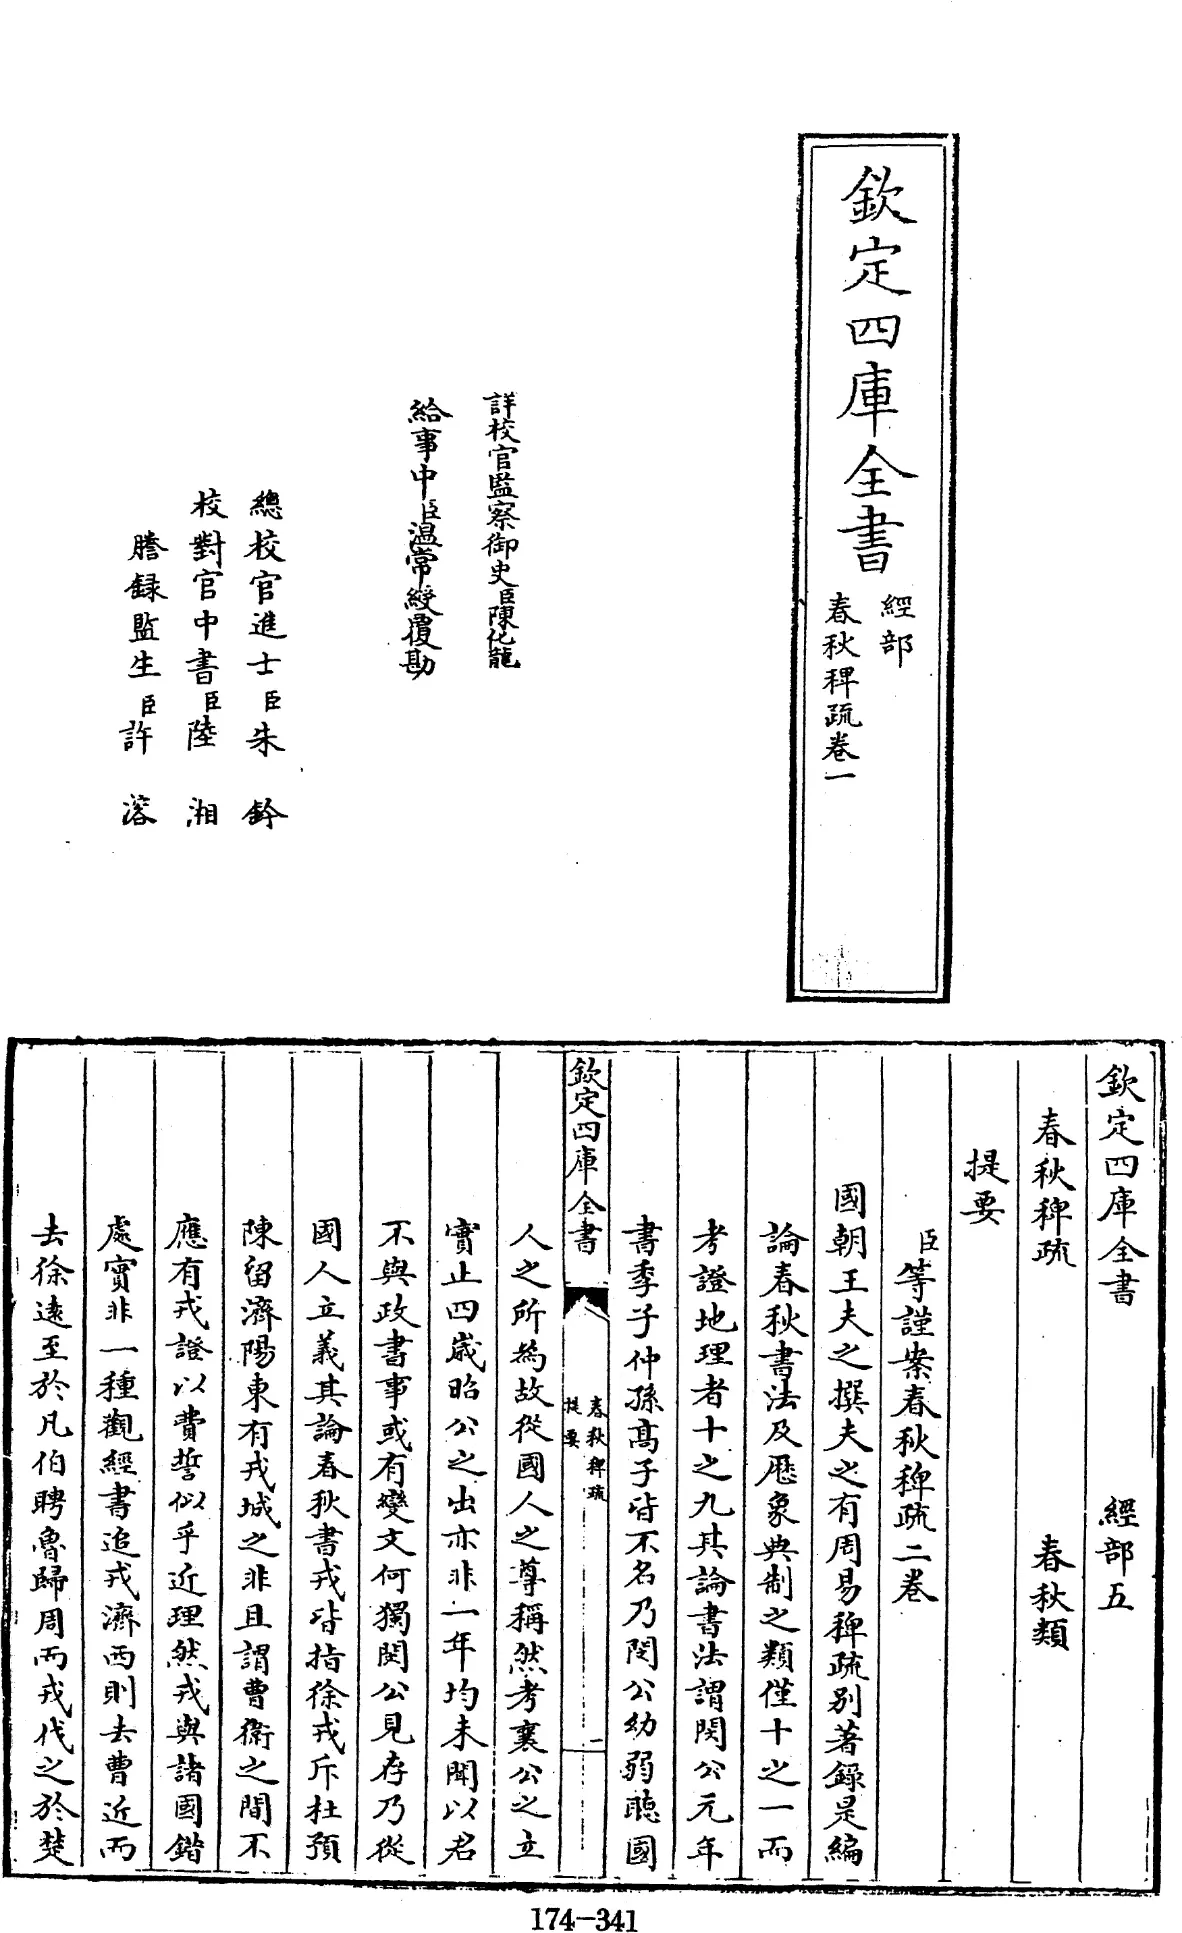 欽定四庫全書
經部
春秋稗疏卷一
詳校官監察御史臣陳化龍
給事中臣温常綬覆勘
總校官進士臣朱鈐
校對官中書臣陸湘
謄録監生臣許溶
欽定四庫全書 經部五
春秋稗疏 春秋類
提要
臣等謹案春秋稗疏二卷
國朝王夫之撰夫之有周易稗疏别著錄是編
論春秋書法及厯象典制之類僅十之一而
考證地理者十之九其論書法謂閔公元年
書季子仲孫髙子皆不名乃閔公幼弱聽國
欽定四庫全書
春秋稗疏
提要
一
人之所為故從國人之尊稱然考襄公之立
實止四嵗昭公之出亦非一年均未聞以君
不與政書事或有變文何獨閔公見存乃從
國人立義其論春秋書戎皆指徐戎斥杜預
陳留濟陽東有戎城之非且謂曹衛之間不
應有戎證以費誓似乎近理然戎與諸國錯
處實非一種觀經書追戎濟西則去曹近而
去徐逺至於凡伯聘魯歸周而戎伐之於楚
174-341